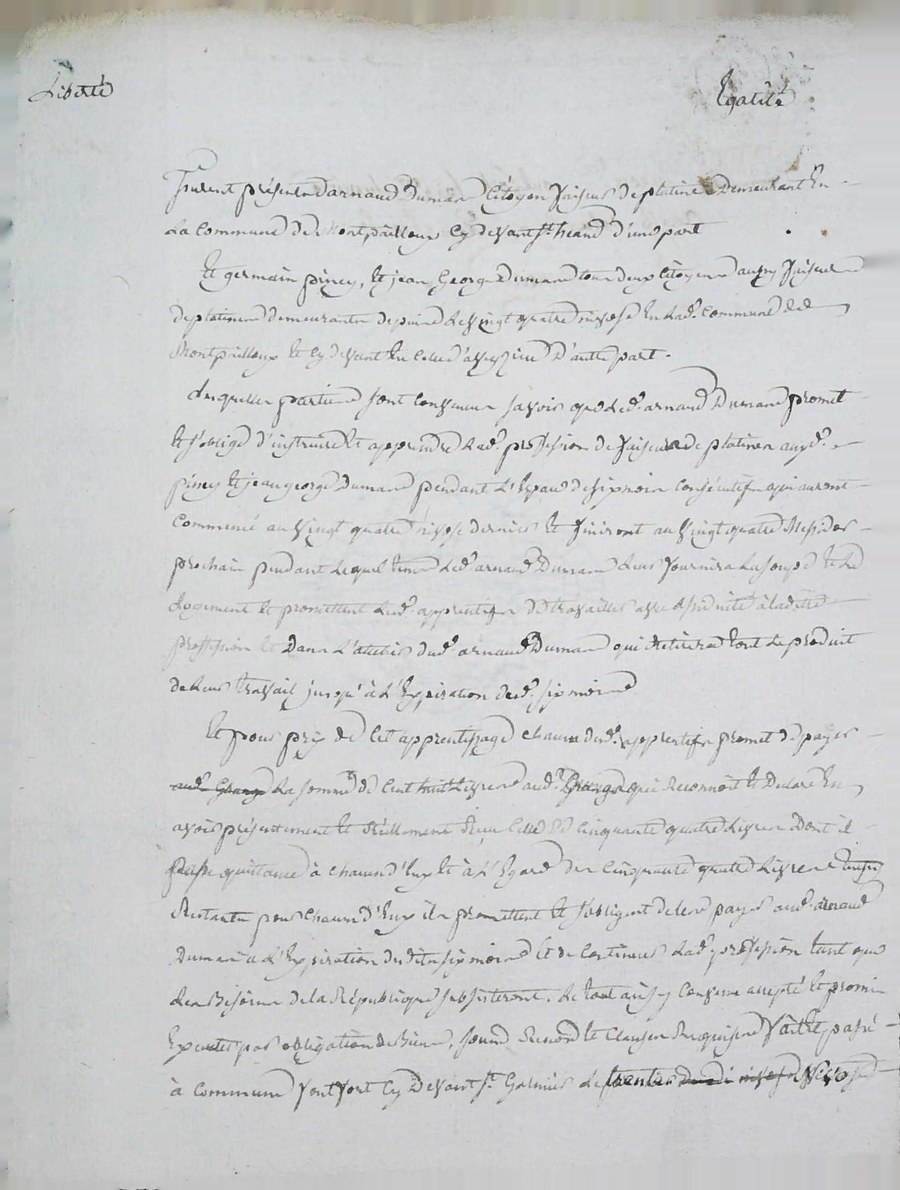 Liberté
Egalité
furent présens arnaud Dumas Citoyen faiseur de platine Demeurant En
La Commune de Montpailloux Cy devant st heand d'une part
Et germain piney, Et jean George Dumas tous deux Citoyens aussy faiseurs
de platines demeurants depuis Le vingt quatre nivose En Lad. Commune de
Montpailloux Et Cy devant En Celle d' d'autre part.
Lesquelles parties sont Convenues savoir que Led. arnaud Dumas promet
Et s'oblige d'instruire Et apprendre Lad. profession de faiseur de platines auxd.
piney Et jean george Dumas pendant L'Espace de six mois Consécutifs qui auront
Commencé au vingt quatre nivose dernier Et finiront au vingt quatre Messidor
prochain pendant Lequel tems Led. arnaud Dumas Leur fournira La soupe Et Le
Logement Et promettent Lesd. apprentifs De travailler avec assiduité à ladite
profession Et Dans L'attelier dud. arnaud Dumas qui Retirera tout Le produit
de Leur travail jusqu'à L'Expiration desd. six mois
Et pour prix de Cet apprentissage chacun desd. apprentifs promet de payer
La somme de Cent huit Livres aud. qui Reconnoit Et Declare En
avoir présentement Et Réellement Reçu Celle de Cinquante quatre Livres dont il
passe quittance à chacun d'Eux Et à L'Egard des Cinquante quatre Livres
Restants pour chacun d'Eux ils promettent Et s'obligent de les payer aud. arnaud
Dumas à L'Expiration desdits six mois Et de Continuer Lad. profession tant que
Les Besoins de la République subsisteront. Le tout ainsy Convenu accepté Et promis
Exécuter par obligation de Biens, soumis Renoncé Et Clauses Requises fait Et passé
à Commune fontfort Cy Devant st. Galmier Le